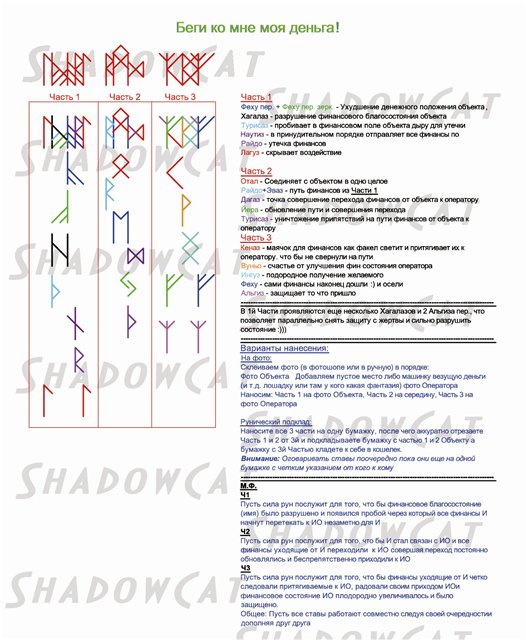 Беги ко мне моя деньга!
SHADOWCAT
Часть 1
Часть 2
Часть 3
Часть 1
Феху пер. + Феху пер. зерк. - Ухудшение денежного положения объекта,
Хагалаз - разрушение финансового благосостояния объекта
Турисаз - пробивает в финансовом поле объекта дыру для утечки
Наутиз - в принудительном порядке отправляет все финансы по
Райдо - утечка финансов
Лагуз - скрывает воздействие
SHADOWCAT
Часть 2
Отал - Соединяет с объектом в одно целое
Райдо+Эваз - путь финансов из Части 1
Дагаз - точка совершение перехода финансов от объекта к оператору
Йера - обновление пути и совершения перехода
Турисаз - уничтожение припятствий на пути финансов от объекта к
оператору
Часть 3
Кеназ - маячок для финансов как факел светит и притягивает их к
оператору. что бы не свернули на пути
Вуньо - счастье от улучшения фин состояния оператора
Ингуз - подородное получение желаемого
Феху - сами финансы наконец дошли :) и осели
Альгиз - защищает то что пришло
SHADOWCAT
В 1й Части прояляются еще несколько Хагалазов и 2 Альгиза пер., что
позволяет параллельно снять защиту с жертвы и сильно разрушить
состояние :)))
Варианты нанесения:
На фото:
Склеиваем фото (в фотошопе или в ручную) в порядке:
Фото Объекта Добавляем пустое место либо машинку везущую деньги
(и т.д. лошадку или там у кого какая фантазия) фото Оператора
Наносим: Часть 1 на фото Объекта, Часть 2 на середину, Часть 3 на
фото Оператора
SHADOWCAT
Рунический подклад:
Наносите все 3 части на одну бумажку, после чего аккуратно отрезаете
Часть 1 и 2 от 3й и подкладываете бумажку с частью 1 и 2 Объекту а
бумажку с 3й Частью кладете к себе в кошелек.
Внимание: Оговаривать ставы поочередно пока они еще на одной
бумажке с четким указанием от кого к кому
SHADOWCAT
М.Ф.
Ч1
Пусть сила рун послужит для того, что бы финансовое благосостояние
(имя) было разрушено и появился пробой через который все финансы И
начнут перетекать к ИО незаметно для И
Ч2
Пусть сила рун послужит для того, что бы И стал связан с ИО и все
финансы уходящие от И переходили к ИО совершая переход постоянно
обновлялись и беспрепятственно приходили к ИО
SHADOWCAT
Ч3
Пусть сила рун послужит для того, что бы финансы уходящие от И четко
следовали притягиваемые к ИО, радовали своим приходом ИОи
финансовое состояние ИО плодородно увеличивалось и было
защищено.
Общее: Пусть все ставы работают совместно следуя своей очередности
дополняя друг друга
SHADOWCAT